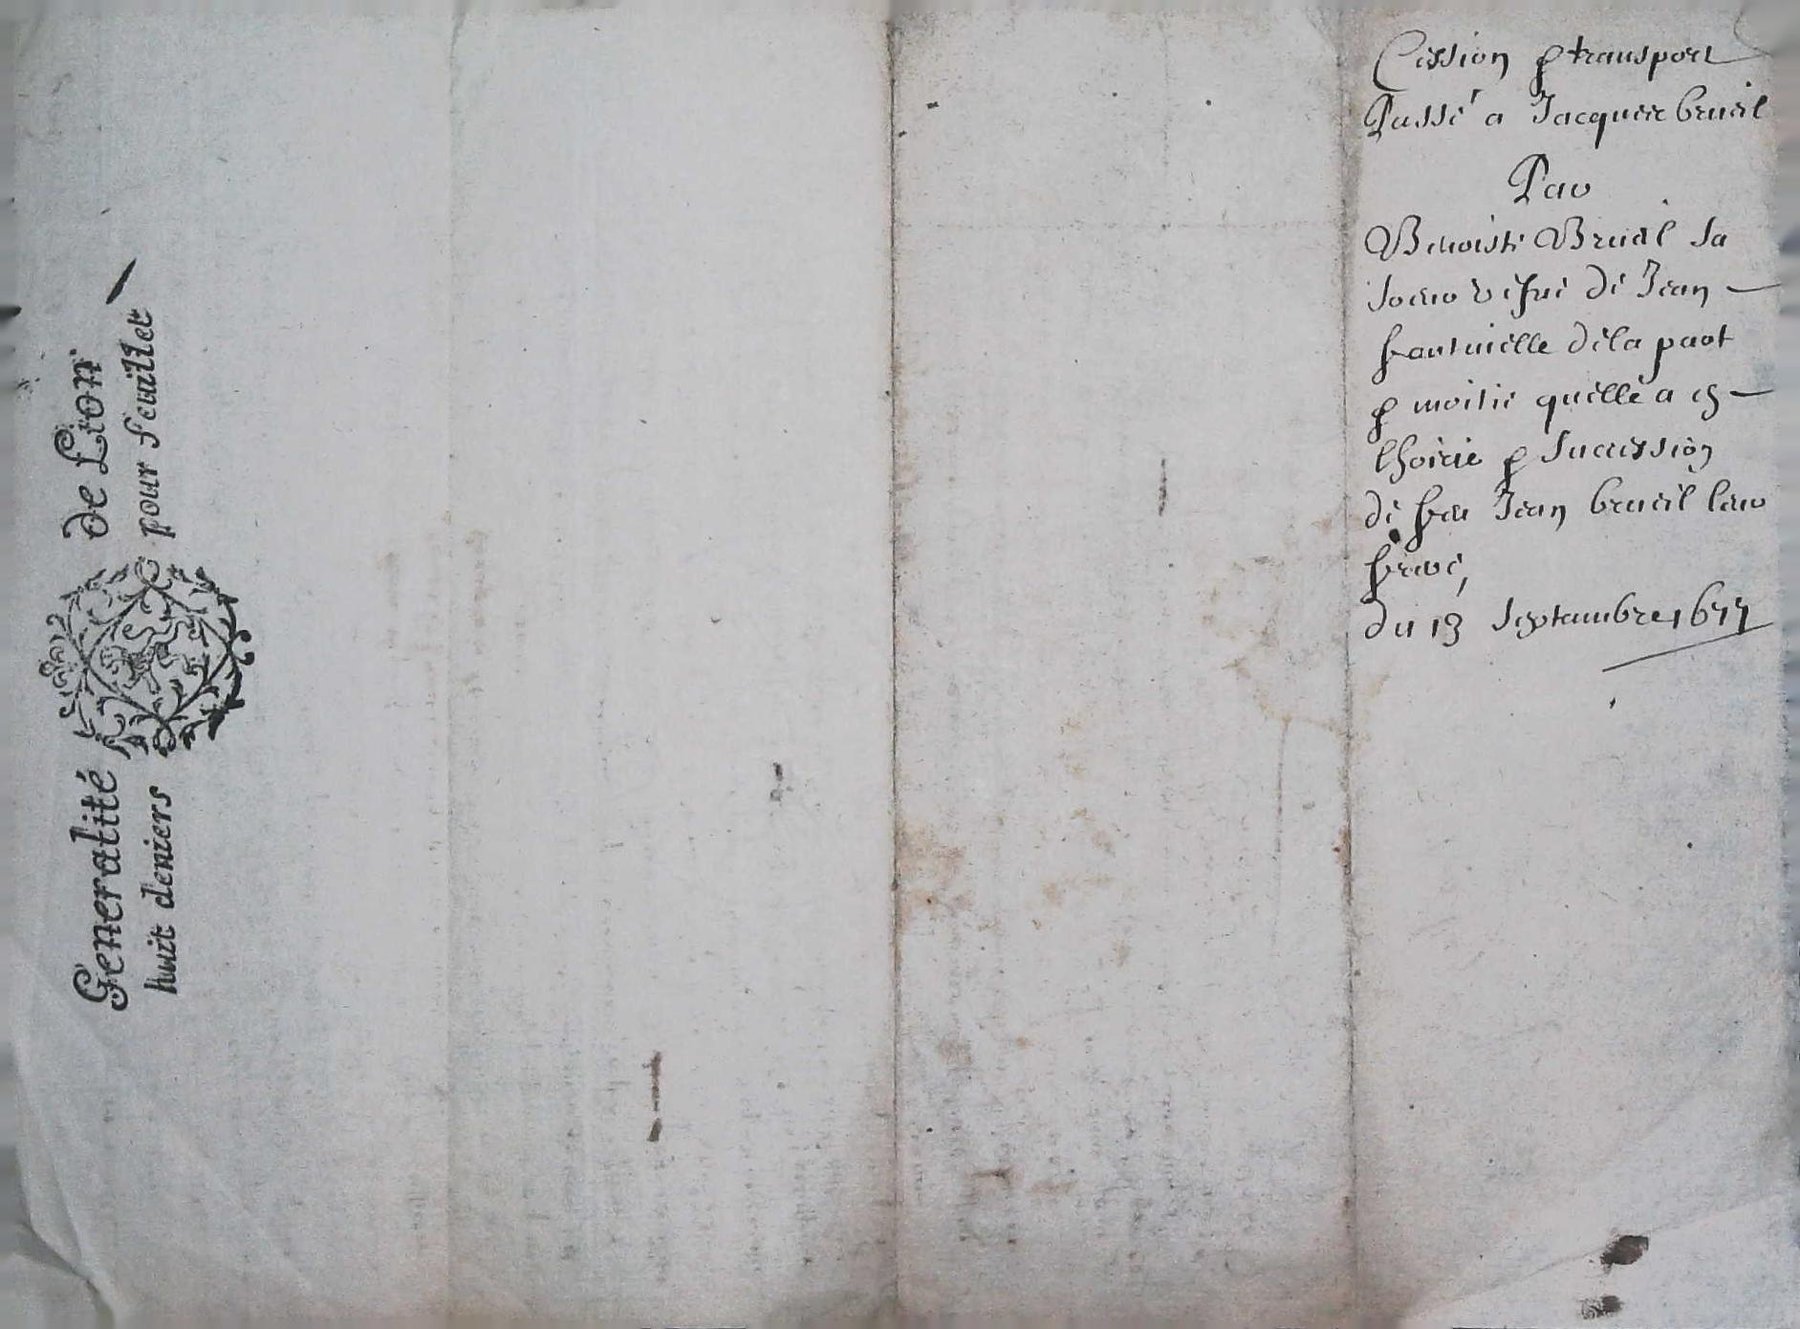 Generalité de Lion
huit deniers pour feuillet
Cession & transport
Passé a Jacques brueil
Par
Benoiste Brueil sa
soeur vefve de Jean
de la part
& moitie quelle a en
lhoirie & sucession
de feu Jean brueil leur
frere,
du 13 Septambre 1677